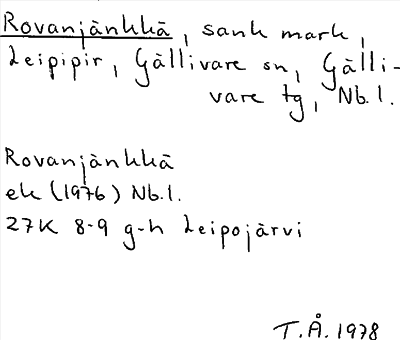 Rovanjänkkä, sank mark,
Leipipir, Gällivare sn, Gälli-
vare tg, Nb.l.
Rovanjänkkä
ek (1976) Nb.l.
27K 8-9 g-h Leipojärvi
T.Å. 1978